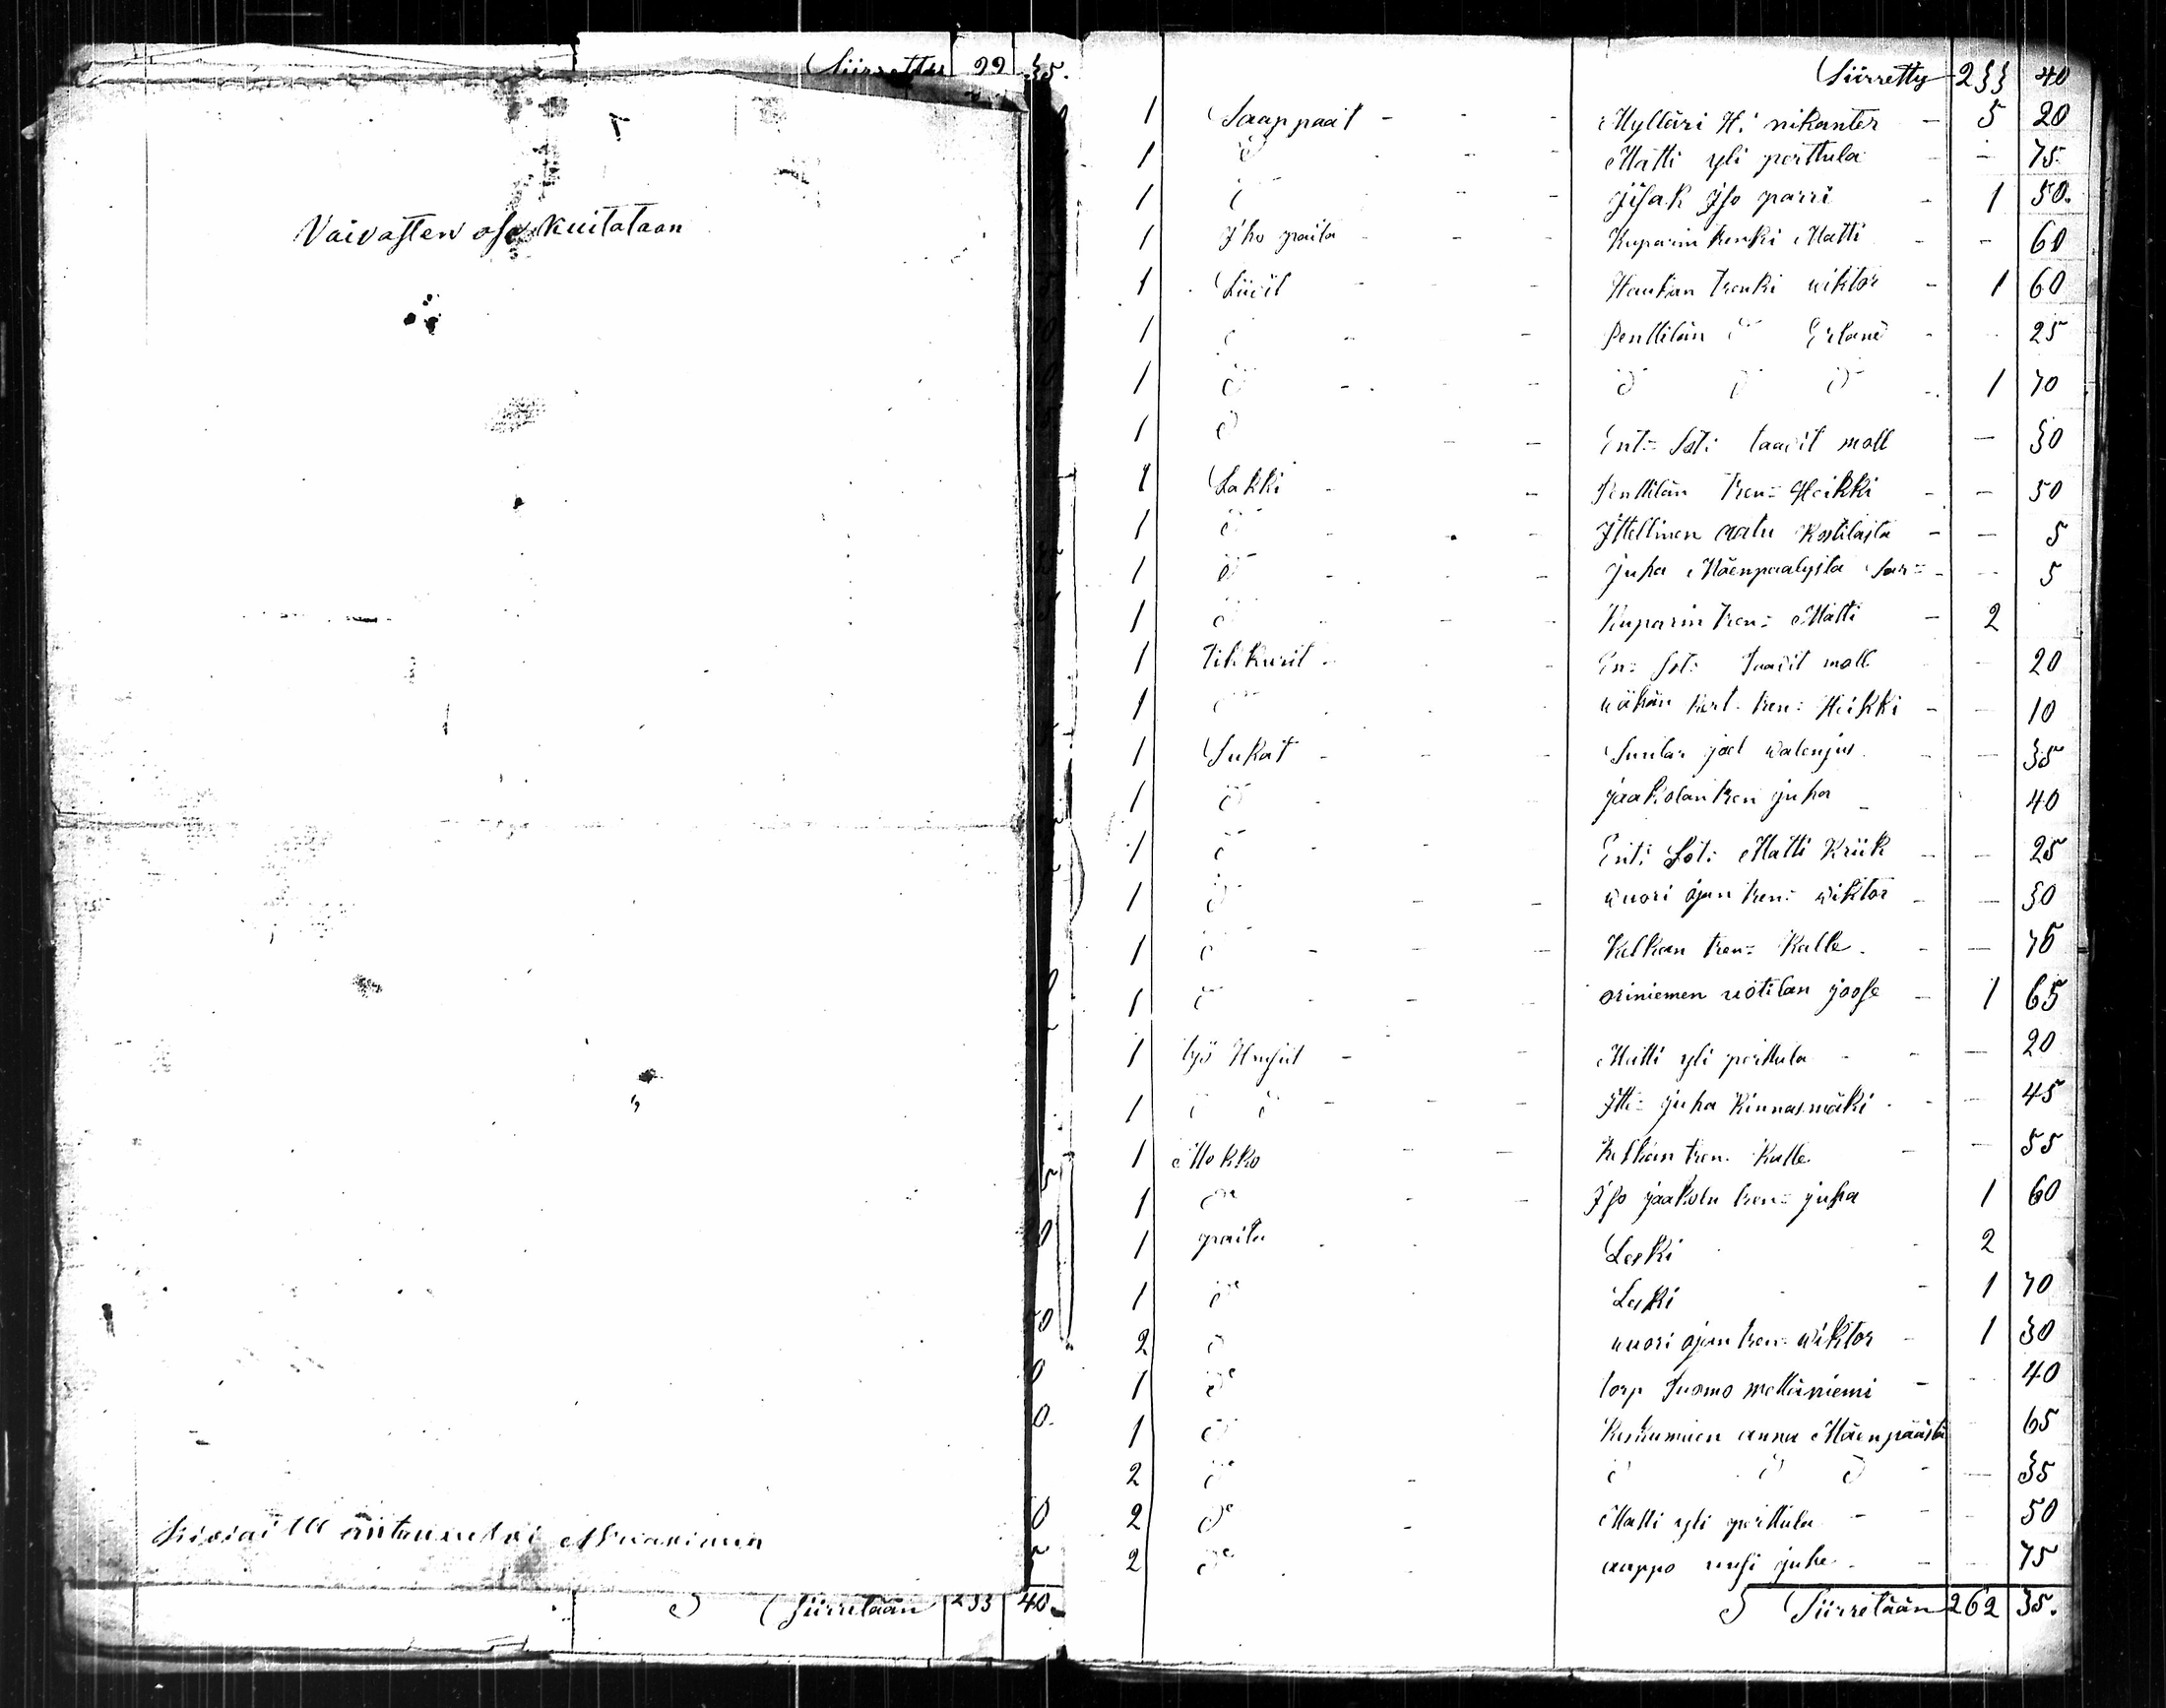 Siirretty 99 35.
Vaivasten osa kuitataan
Siirretään 233 40.
Siirretty 233 40
1 Saappaat - - - Mylläri H: nikanter - 5 20
1 d° - - - Matti yli perttula - 75
1 d° - - Jisak Jso parri - 1 50.
1 J'ho paita - - - Kuparin trenki Matti - - 60
1 Liivit - - - Haukan trenki wiktor - 1 60
1 d° - - Penttilän d° Erland - 25
1 d° - - - d° d° d° - 1 70
1 d° - - Ent= Sot: taavit moll - 30
1 Lakki - - Penttilän tren= Heikki - - 50
1 d° - - Ittellinen aatu Kostilasta - - 5
1 d° - - - Juha Mäenpaalysta - - 5
1 d° - - - Kuparin tren= Matti - 2
1 Tikkurit - En= Sot: Taavit moll 20
1 d° - wähän tren: Heikki - - 10
1 Sukat - - - joel walenjus - 35
1 d° - jaakolan tren juha - 40
1 d° - - Ent: Sot: Matti Kriik - - 25
1 d° - - wuori ojan tren: wiktor - - 30
1 d° - - - Kelkan tren= Kalle - - 75
1 d° - - - oriniemen uotilan joose - 1 65
1 työ Husut - - Matti yli perttula - - 20
1 d° d° - - - Itte= juha Kinnasmäki - - 45
1 Mekko - - Kelkan tren. Kalle - 55
1 d° - - Jso jaakola tren= juha 1 60
1 paita - Leski 2
1 d° Leski - 1 70
2 d° wuori ojan tren= wiktor - 1 30
1 d° torp Tuomo mettäniemi - - 40
1 d° anna Mäenpäästä 65
2 d° - d° d° d° - - 35
2 d° - Matti yli perttula - - 50
2 d° - aappo uusi juhe - - 75
S Siirretään 262 35.